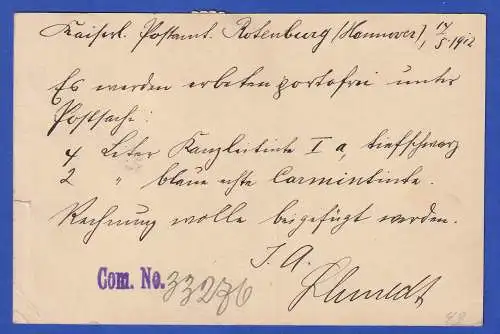 Kaiserl. Postamt. Rotenburg (Hannover), 17/5 1912
Es werden erbeten portofrei unter
Postsache:
4 Liter Kanzleitinte I a, tiefschwarz
2 " blaue echte Carmintinte.
Rechnung wolle beigefügt werden.
I. A.
Com. No. 33276